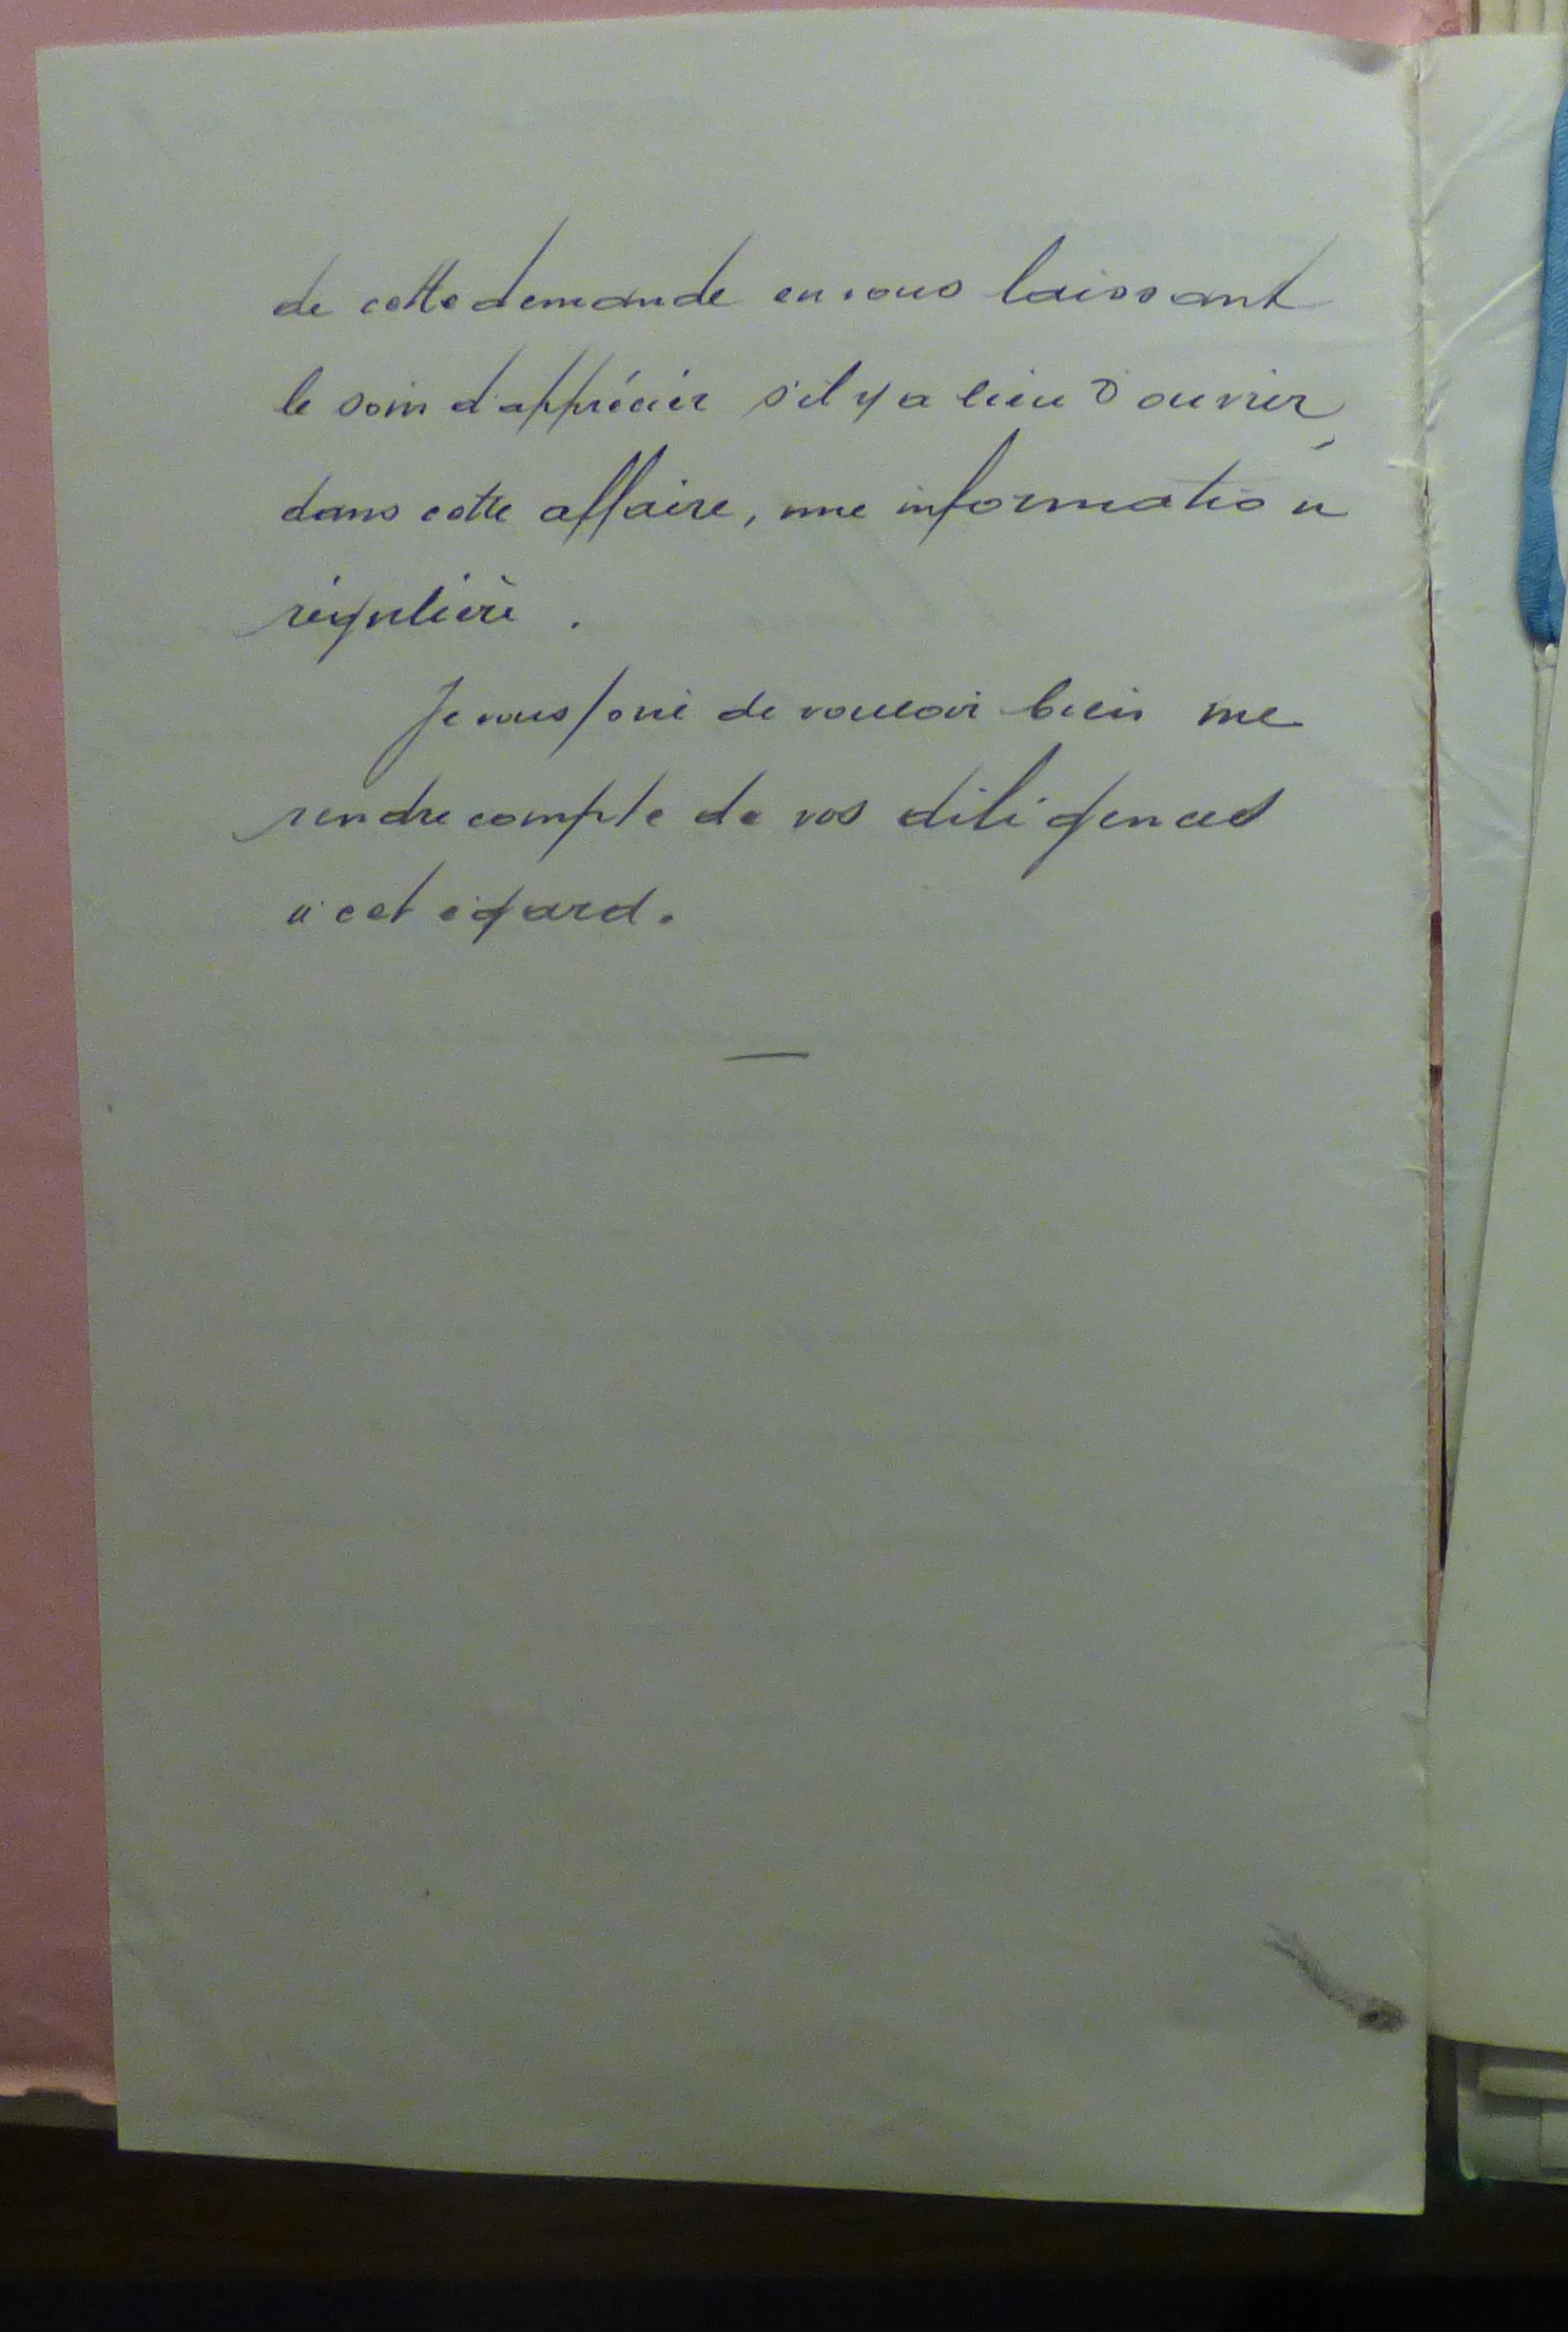 de cette demande en vous laissant
le soin d'apprécier s'il y a lieu d'ouvrir,
dans cette affaire, une information
régulière.
Je vous prie de vouloir bien me
rendre compte de vos diligences
à cet égard.